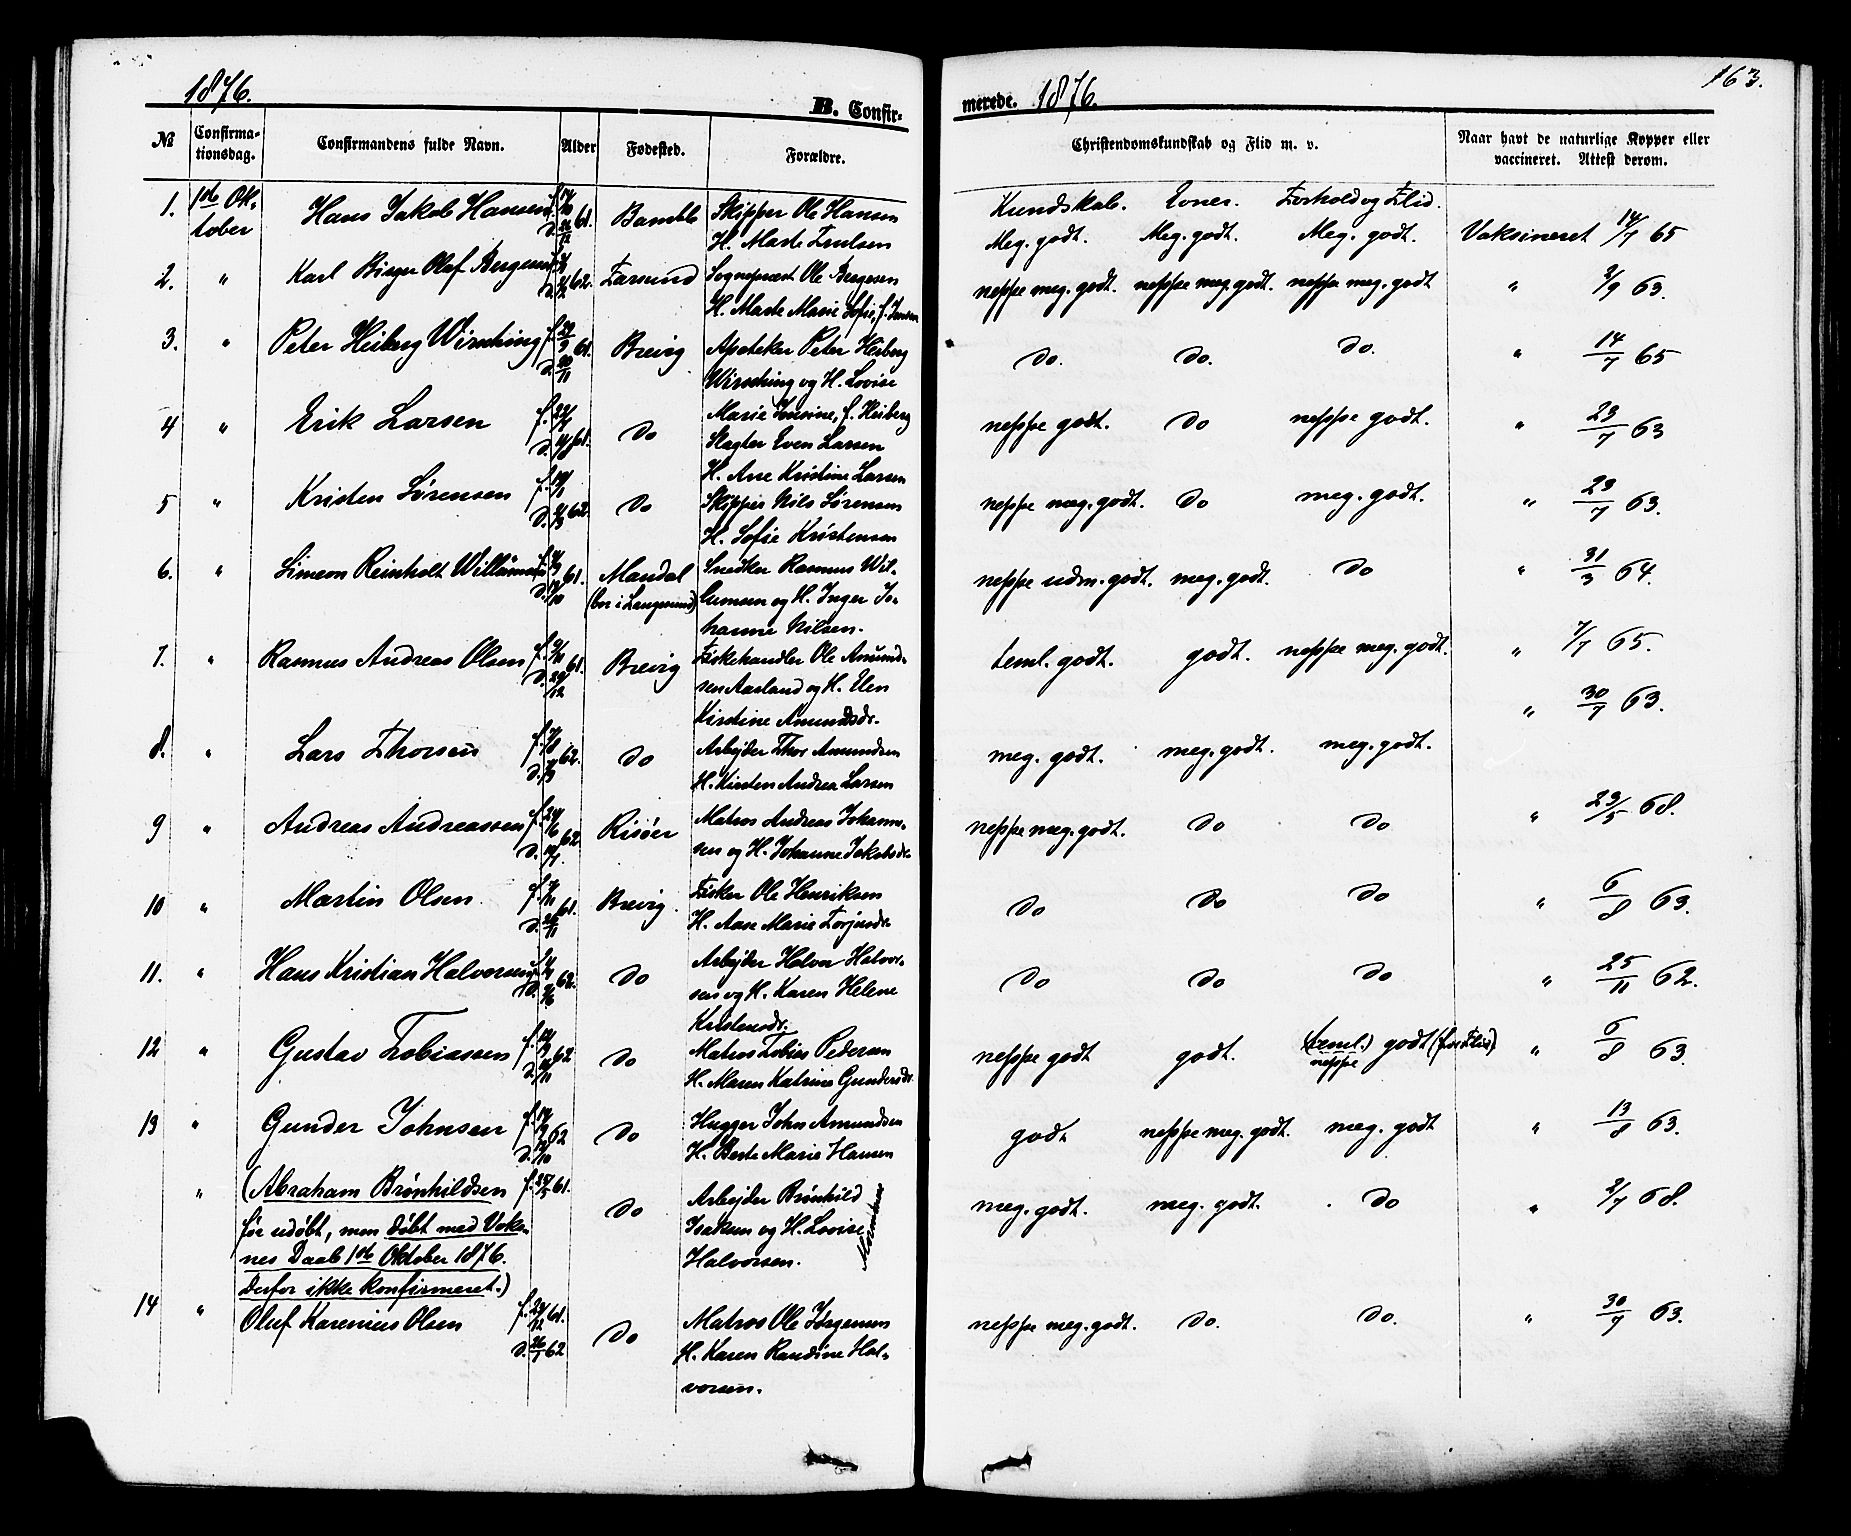 1876.
B. Confir-
merede. 1876.
163.
No
Confirma-
tionsdag.
Confirmandens fulde Navn.
Alder
Fødested.
Forældre.
Christendomskundskab og Flid m. v.
Naar havt de naturlige Kopper eller
vaccineret. Attest derom.
Kundskab. Evner. Forhold og Flid.
1. 1ste Ok- Hans Jakob Hansen f. d. 61. Bamble Skipper Ole Hansen
tober H. Marte Poulsen
Meg. godt. Meg. godt. Meg. godt. Vaksineret 14/7 65
2. " Karl Birger Olaf Bergesen f. d. 62. Farsund Sogneprest Ole Bergesen
H. Marte Marie Sofie, f. Jansen
neppe meg. godt. neppe meg. godt. neppe meg. godt " 3/9 63.
3. " Peter Heiberg Wirsching f. 29/9 d. 20/11 61. Brevig Apoteker Peter Heiberg
Wirsching og H. Lovise
Marie Jensine, f. Heiberg
do. do. do. " 14/7 65
4 " Erik Larsen f. d. 61. do Slagter Even Larsen
H. Ane Kristine Larsen
neppe godt. do neppe godt. " 23/7 63
5 " Kristen Sørensen f. d. 62. do Skipper Nils Sørensen
H. Sofie Kristensen
neppe meg. godt. do meg. godt. " 23/7 63.
6. " Simeon Reinholt Willumsen f. d. 61. Mandal Snedker Rasmus Wil-
(bor i Langesund) lumsen og H. Inger Jo-
hanne Nilsen.
neppe udm. godt. meg. godt. do " 31/3 64.
7. " Rasmus Andreas Olsen f. d. 61. Brevig Fiskehandler Ole Amund-
sen Aasland og H. Elen
Kirstine Amundsdr.
teml. godt. godt. neppe meg. godt. " 7/7 65.
8. " Lars Thorsen f. d. 62. do Arbejder Thor Amundsen
H. Kirsten Andrea Larsen
meg. godt. meg. godt. meg. godt. " 30/7 63.
9 " Andreas Andreassen f. d. 62 Risøer Matros Andreas Johann-
sen og H. Johanne Jakobsdr.
neppe meg. godt. do do " 23/5 68.
10 " Martin Olsen f. d. 61. Brevig. Fisker Ole Henriksen
H. Aase Marie Torjusdr.
do do do " 6/8 63.
11. " Hans Kristian Halvorsen f. d. 62. do Arbejder Halvor Halvor-
sen og H. Karen Helene
Kristensdr.
do do do " 25/11 62.
12 " Gustav Tobiassen f. d. 62 do Matros Tobias Pedersen
H. Maren Katrine Gundersdr.
neppe godt godt. (teml.) neppe godt (for Flid) " 6/8 63.
13 " Gunder Johnsen f. d. 62 do Hugger John Amundsen
H. Berte Marie Hansen
godt neppe meg. godt. meg. godt " 13/8 63.
" (Abraham Brønhildsen f. 61. do Arbejder Brønhild
før udøbt, men døbt med Voks- Isaksen og H. Lovise
nes Daab 1ste Oktober 1876. Halvorsen.
derfor ikke konfirmeret.)
meg. godt. meg. godt. do " 2/7 68.
14 " Oluf Karenius Olsen f. 61. d. 62 do Matros Ole Jørgensen
H. Karen Randine Hal-
vorsen.
neppe meg. godt. do. do. " 30/7 63.